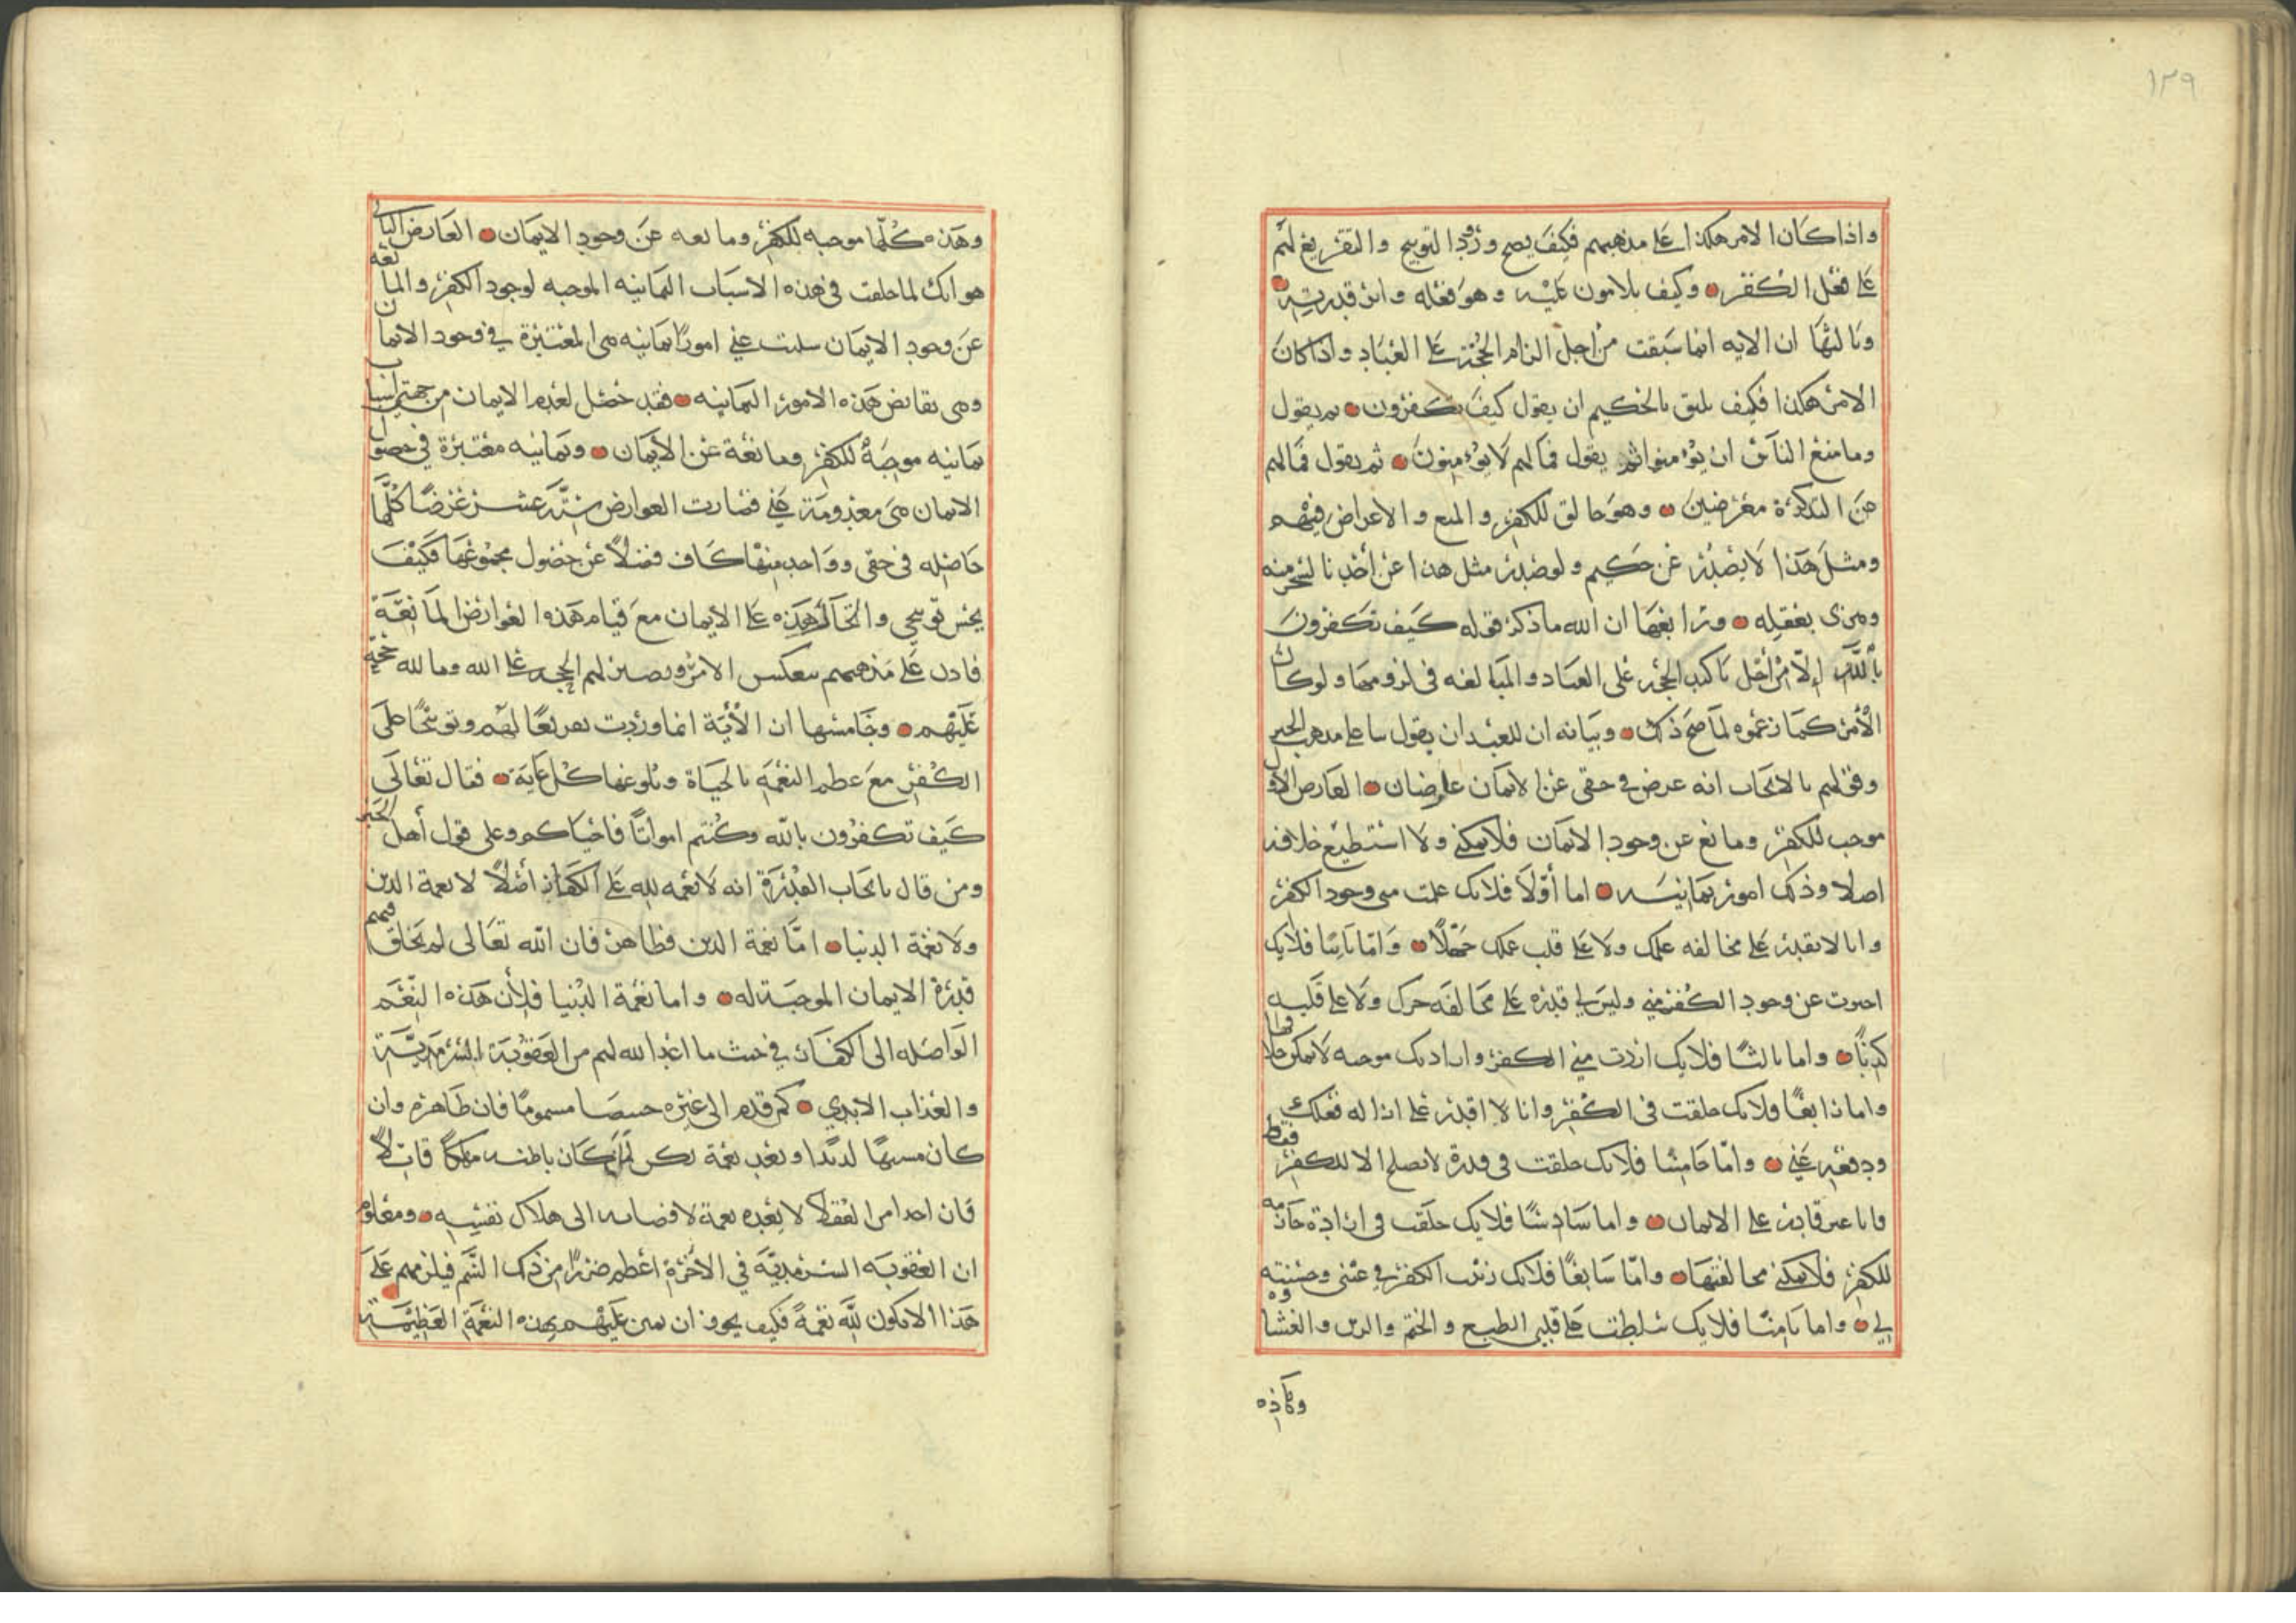 ١٢٩
واذا كان الامر هكذا على مذهبهم فكيف يصح ورود التوبيخ والتقريع لهم
على فعل الكفر وكيف يلامون عليه وهو فعله واثر قدرته
وثالثها ان الايه انما سبقت من اجل الزام الحجة على العباد واذا كان
الامر هكذا فكيف يليق بالحكيم ان يقول كيف تكفرون ثم يقول
وما منع الناس ان يؤمنوا ثم يقول فمالهم لا يؤمنون ثم يقول فمالهم
عن التذكرة معرضين وهو خالق للكفر والمنع والاعراض فيهم
ومثل هذا لا يصدر عن حكيم ولو صدر مثل هذا عن احدنا لسخر منه
وهزى بعقله ورابعها ان الله ما ذكر قوله كيف تكفرون
بالله الا من اجل تاكيد الحجة على العباد والمبالغه فى لزومها ولو كان
الامر كما زعموه لما صح ذلك وبيانه ان للعبد ان يقول بنا على مذهب الجبر
وقولهم بالايجاب انه عرض في حقى عن الايمان عارضان العارض الاول
موجب للكفر ومانع عن وجود الايمان فلا يمكنني ولا استطيع خلافه
اصلا وذلك امور ثمانيه اما أولا فلانك علمت منى وجود الكفر
وانا لا نقدر على مخالفه علمك ولا على قلب علمك جهلا واما ثانيا فلانك
اخبرت عن وجود الكفر مني وليس لي قدره على مخالفه خبرك ولا على قلبه
كذبا واما ثالثا فلانك اردت مني الكفر وارادتك موجبه لا يمكن خلافها
واما رابعا فلانك خلقت فى الكفر وانا لا اقدر على ازاله فعلك
ودفعه عني واما خامسا فلانك خلقت فى قدرة لا تصلح الا للكفر فقط
وانا غير قادر على الايمان واما سادسا فلانك خلقت فى ارادة جازمه
للكفر فلا يمكنني مخالفتها واما سابعا فلانك زينت الكفر في عينى وحسنته
لي واما ثامنا فلانك سلطت على قلبي الطبع والختم والرين والغشاوه
وهذه كلها موجبه للكفر ومانعه عن وجود الايمان العارض الثانى
هو انك لما خلقت فى هذه الاسباب الثمانيه الموجبه لوجود الكفر والمانعه
عن وجود الايمان سلبت عني امورا ثمانيه هى المعتبرة في وجود الايمان
وهى نقائض هذه الامور الثمانيه فقد حصل لعدم الايمان من جهتى اسباب
ثمانيه موجبة للكفر ومانعة عن الايمان وثمانيه معتبرة في حصول
الايمان هى معدومة عني فصارت العوارض ستة عشر عرضا كلها
حاصله فى حقى وواحد منها كاف فضلا عن حصول مجموعها فكيف
يحسن توبيخي والحال هذه على الايمان مع قيام هذه العوارض المانعة
فاذن على مذهبهم ينعكس الامر ويصير لهم الحجه على الله وما لله حجة
عليهم وخامسها ان الأية انما وردت تقريعا لهم وتوبيخا على
الكفر مع عظم النعمه بالحياة وبلوغها كل غاية فقال تعالى
كيف تكفرون بالله وكنتم امواتا فاحياكم وعلى قول أهل الجبر
ومن قال بايجاب القدرة انه لا نعمه لله على الكفار أصلا لا نعمة الدين
ولا نعمة الدنيا امّا نعمة الدين فظاهر فان الله تعالى لم يخلق فيهم
قدرة الايمان الموجبة له واما نعمة الدنيا فلأن هذه النعم
الواصله الى الكفار في جنب ما اعد الله لهم من العقوبة السرمدية
والعذاب الابدي كمن قدم الى غيره خبيصا مسموما فان ظاهره وان
كان مشتهًا لذيذا ويعد نعمة لكن لما كان باطنه مهلكا قاتلا
فان احدا من العقلا لا يعده نعمة لافضائه الى هلاك نفسه ومعلوم
ان العقوبه السرمديّه في الاخرة اعظم ضررا من ذلك السم فيلزمهم على
هذا الا يكون لله نعمة فكيف يجوز ان يمن عليهم بهذه النعمة العظيمة